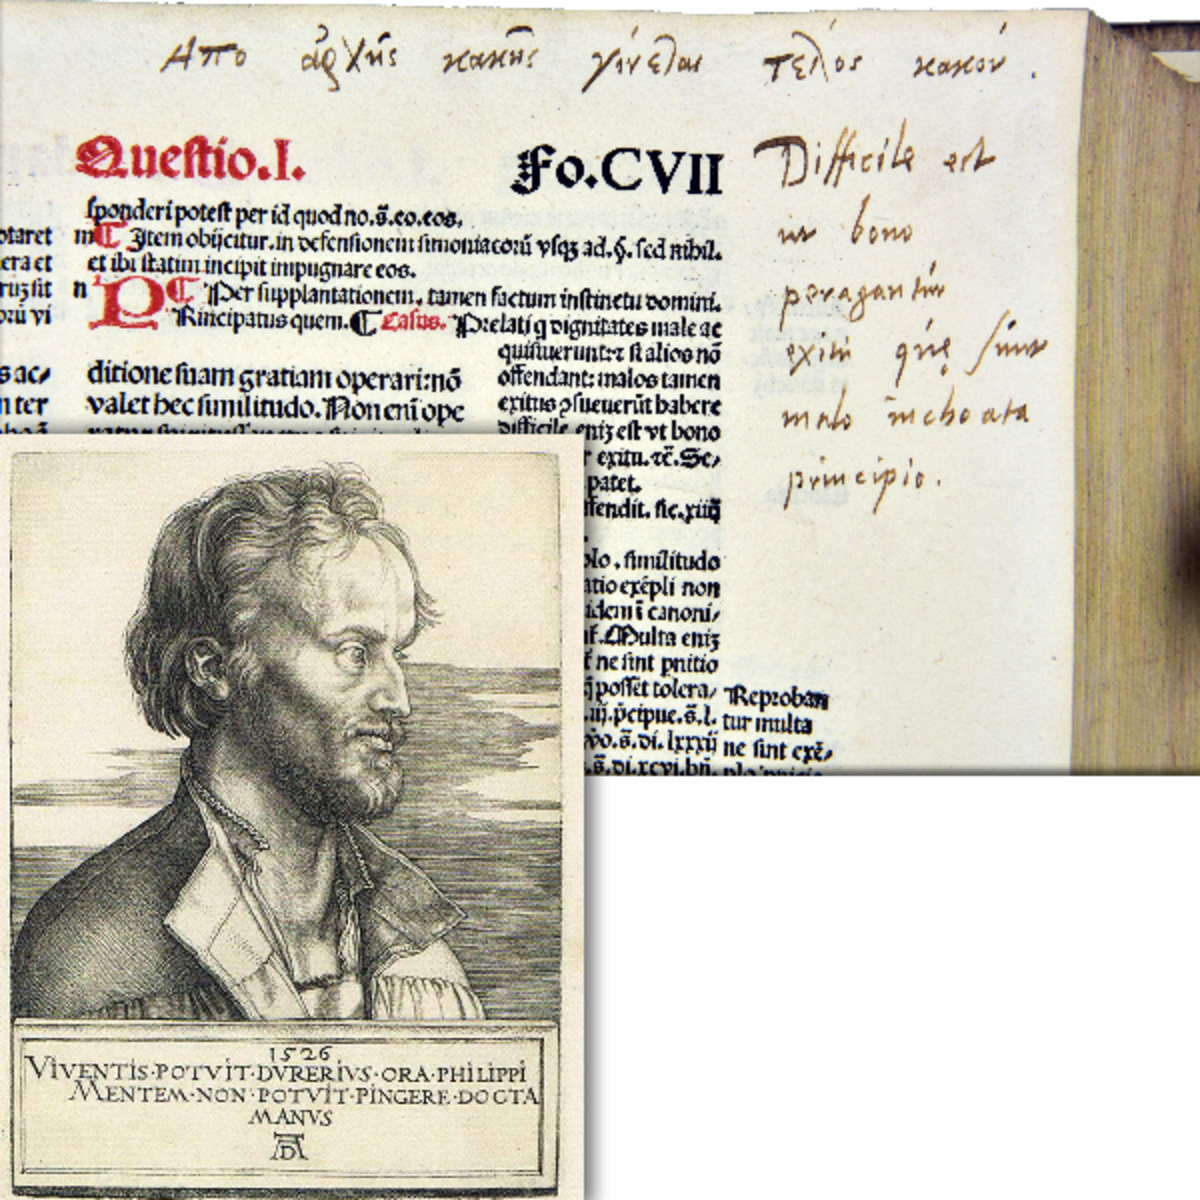 Απο ἀρχῆς κακῆς γίνεται τέλος κακόν.
Questio.I. Fo.CVII
sponderi potest per id quod no.s̄.eo.eos.
Item obijcitur.in defensionem simoniacorū vsqz ad.§. sed nihil.
et ibi statim incipit impugnare eos.
Per supplantationem, tamen factum instinctu domini.
PRincipatus quem. Casus. Prelati q dignitates male ac
quisiuerunt: ⁊ si alios nō
offendant: malos tamen
exitus ꝯsueuerūt habere
difficile eniz est vt bono
exitu. ⁊c̄. Se/
patet.
ffendit. sic.xiiij
ditione suam gratiam operari: nō
valet hec similitudo. Non eni ope
otaret
era et
ruz sit
orū vi
s ac/
n ter
plo, similitudo
atio exēpli non
idem ī canoni/
Multa eniz
ne sint pnitio
posset tolera/
.iij. p̄cipue.s̄.l.
vo.s̄.di.lxxxij
s̄.di.xcvi.bn̄.
Reproban
tur multa
ne sint exē/
Difficile est
ut bono
peragantur
exitu quę sunt
malo inchoata
principio.
1526
VIVENTIS·POTVIT·DVRERIVS·ORA·PHILIPPI
MENTEM·NON·POTVIT·PINGERE·DOCTA
MANVS
AD